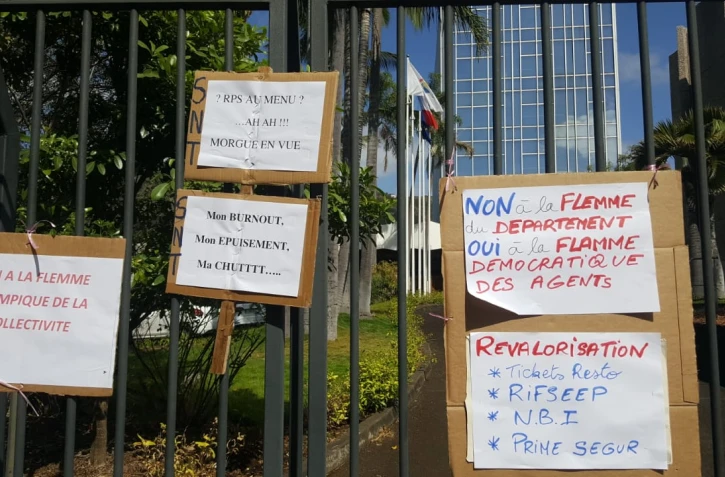 SNT
? RPS AU MENU ?
...AH AH !!!
MORGUE EN VUE
SNT
Mon BURNOUT,
Mon EPUISEMENT,
Ma CHUTTTT…..
A LA FLEMME
MPIQUE DE LA
OLLECTIVITE
NON à la FLEMME
du DEPARTEMENT
OUI à la FLAMME
DEMOCRATIQUE
DES AGENTS
REVALORISATION
* Tickets Resto
* RiFSEEP
* N.B.I
* PRIME SEGUR